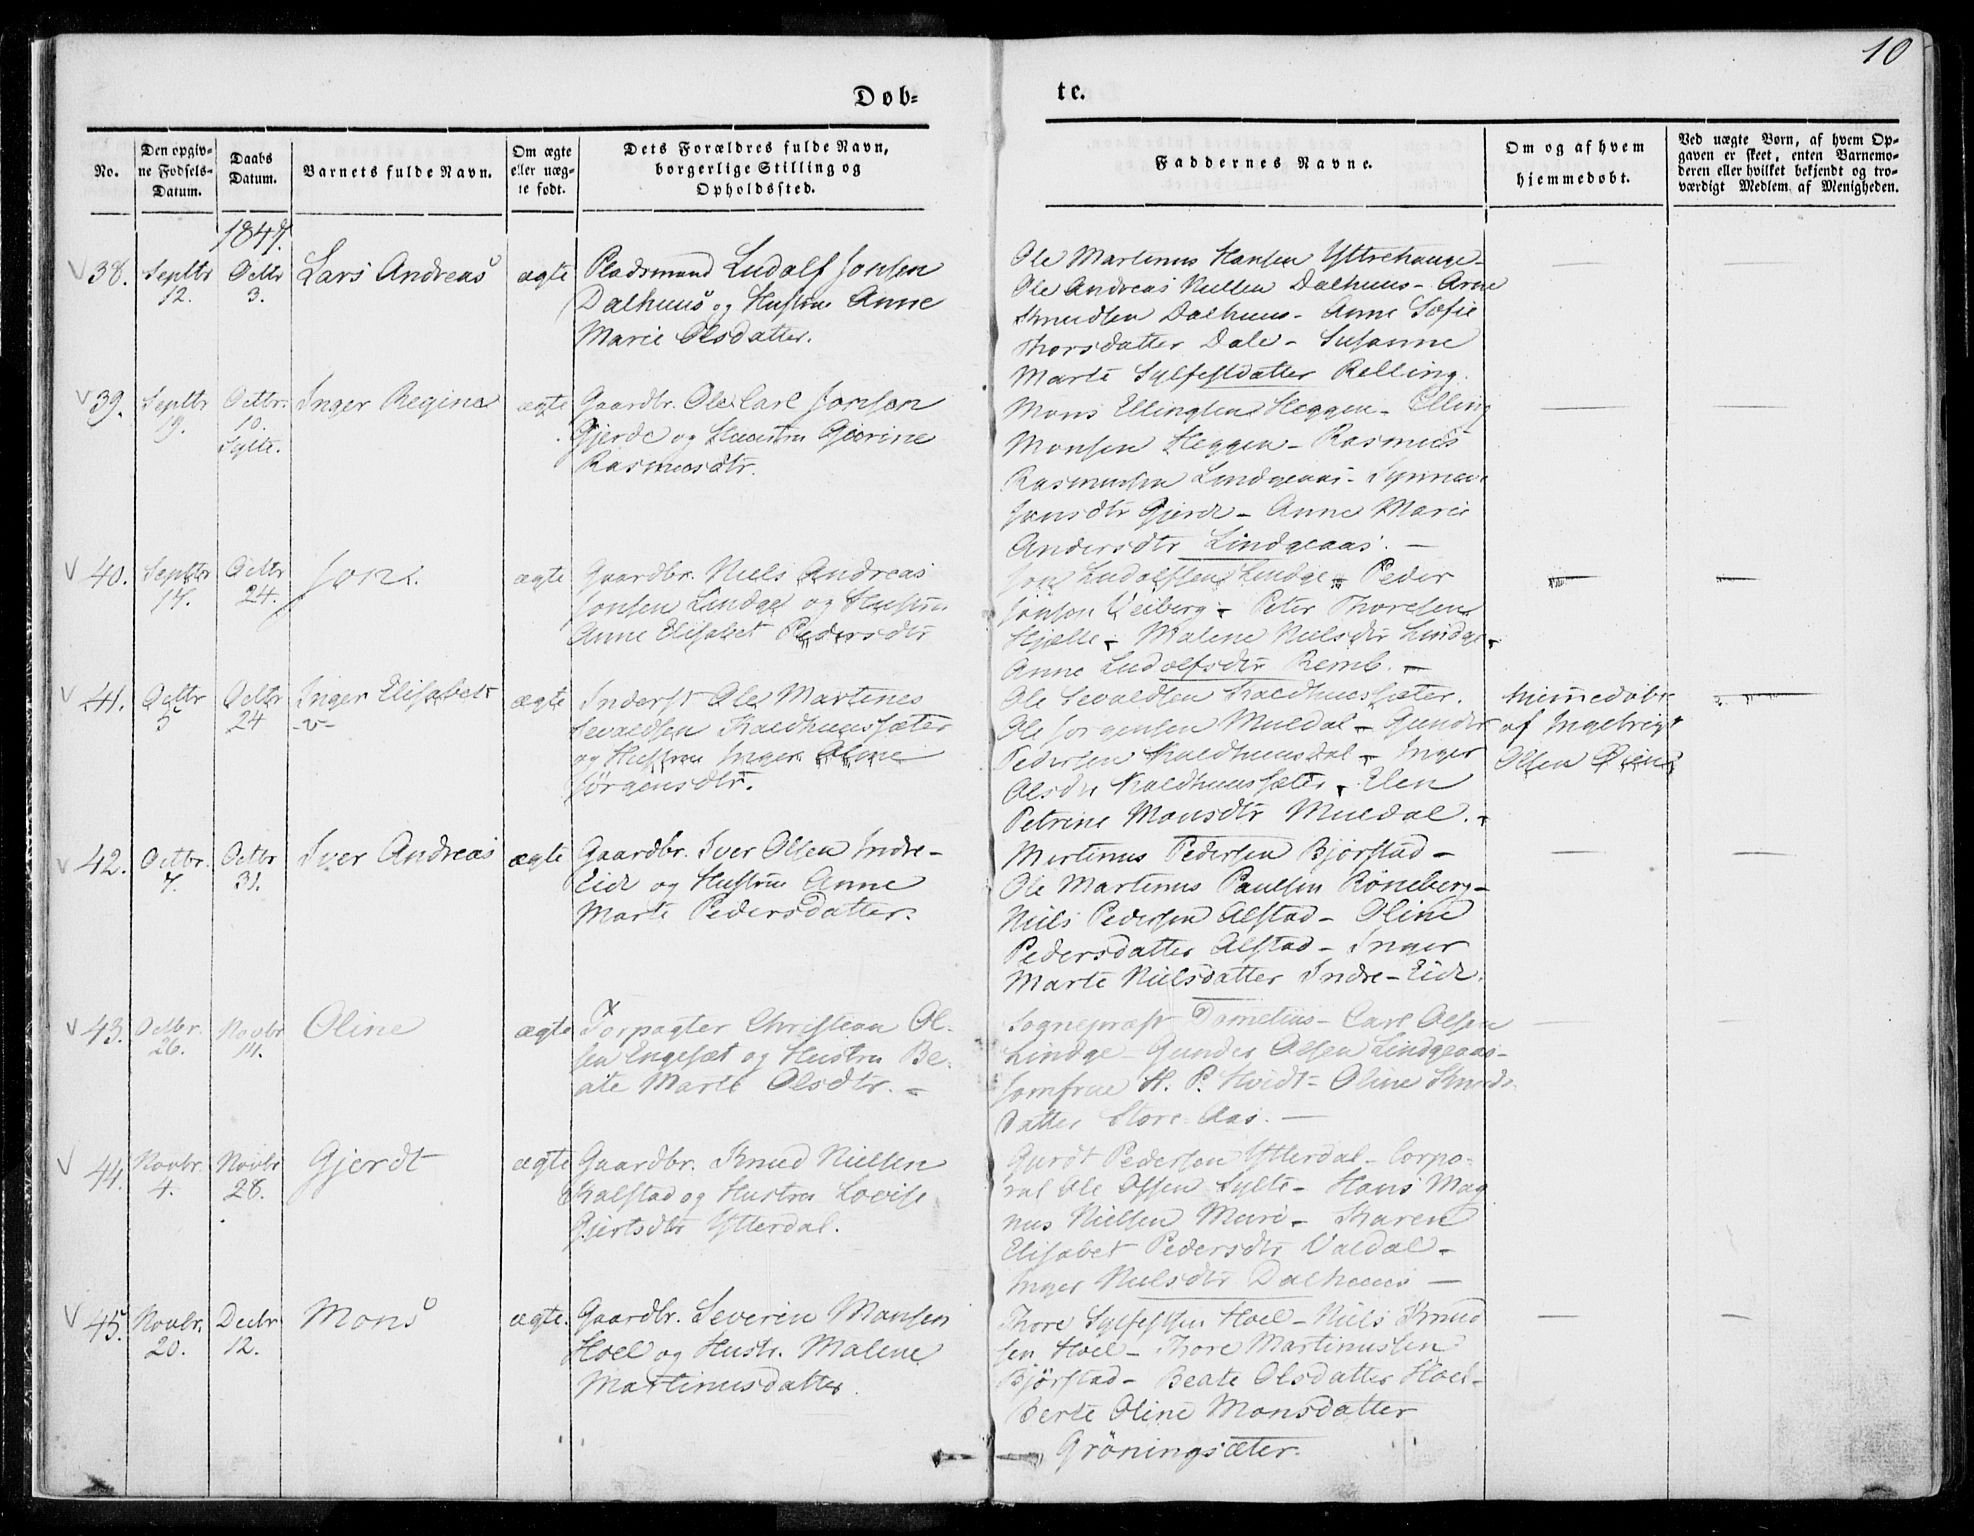 10
Døb=
te.
No.
Den opgiv=
ne Fødsels=
Datum.
Daabs
Datum.
Barnets fulde Navn.
Om ægte
eller uæg=
te født.
Dets Forældres fulde Navn,
borgerlige Stilling og
Opholdssted.
Faddernes Navne.
Om og af hvem
hjemmedøbt.
Ved uægte Børn, af hvem Op=
gaven er skeet, enten Barnemo=
deren eller hvilket bekjendt og tro=
værdigt Medlem af Menigheden.
1847.
38.
Septbr
12.
Octbr
3.
Lars Andreas
ægte
Pladsmand Ludolf Jonsen
Dalhuus og Hustru Anne
Marie Olsdatter.
Ole Martinus Hansen Yttrehauge-
Ole Andreas Nielsen Dalhuus- Arne
Knudsen Dalhuus- Anne Sofie
Thorsdatter Dale- Susanne
Marte Sylfestdatter Relling.
39.
Septbr
19.
Octbr.
10.
Sylte.
Inger Regine
ægte
Gaardbr. Ole Carl Jonsen
Gjerde og Huustru Gjærine
Rasmusdtr.
Mons Ellingsen Heggen- Elling
Monsen Heggen- Rasmus
Rasmussen Lindgeaas- Synneve
Jonsdtr Gjerde- Anne Marie
Andersdtr Lindgeaas. -
40.
Septbr
17.
Octbr
24.
Jon.
ægte
Gaardbr. Niels Andreas
Jonsen Lindge og Hustru
Anne Elisabet Pedersdtr
Jon Ludolfsen Lindge- Peder
Jonsen Veiberg- Peter Thoresen
Hjelle- Malene Nielsdtr Lindge-
Anne Ludolfsdtr Remb. -
41.
Octbr
5
Octbr
24
Inger Elisabet
-v-
ægte
Inderst Ole Martines
Sevaldsen Kaldhuussæter
og Hustru Inger Oline
Jørgensdtr.
Ole Sevaldsen Kaldhuussæter.
Ole Jørgensen Muldal- Gunder
Pedersen Kaldhuusdal- Inger
Olsdtr Kaldhuussæter- Elen
Petrine Monsdtr Muldal. -
hiemmedøbt
af Ingebrigt
Olsen Øien
42.
Octbr.
7.
Octbr
31.
Iver Andreas
ægte
Gaardbr. Iver Olsen Indre-
Eide og Hustru Anne
Marte Pedersdatter.
Martinus Pedersen Bjørstad-
Ole Martinus Paulsen Røneberg-
Niels Pedersen Alstad- Oline
Pedersdatter Alstad- Inger
Marte Nielsdatter Indre-Eide.
43.
Octbr.
26.
Novbr
14.
Oline
ægte
Forpagter Christian Ol-
sen Engeset og Hustru Be-
ate Marte Olsdtr. -
Sognepræst Carl Olsen
Lindge- Gunder Olsen Lindgeaas-
Jomfrue H. P. Hvidt- Oline Knuds-
datter Store-Aas. -
44.
Novbr.
4.
Novbr
28.
Gjerdt
ægte
Gaardbr. Knud Nielsen
Kalstad og Hustru Lovise
Gjertsdtr Ytterdal.
Gurdt Pedersen Ytterdal- Corpo-
ral Ole Olsen Sylte- Hans Mag
nus Nielsen Muri- Karen
Elisabet Pedersdtr Valdal-
Inger Nielsdtr Dalhuus -
45.
Novbr.
20.
Decbr
12.
Mons
ægte.
Gaardbr. Severin Monsen
Hoel og Hustr. Malene
Martinusdatter.
Thore Sylfestsen Hoel- Niels Knud
sen Hoel- Thore Martinussen
Bjørstad- Beate Olsdatter Hoel-
Berte Oline Monsdatter
Grøningsæter.